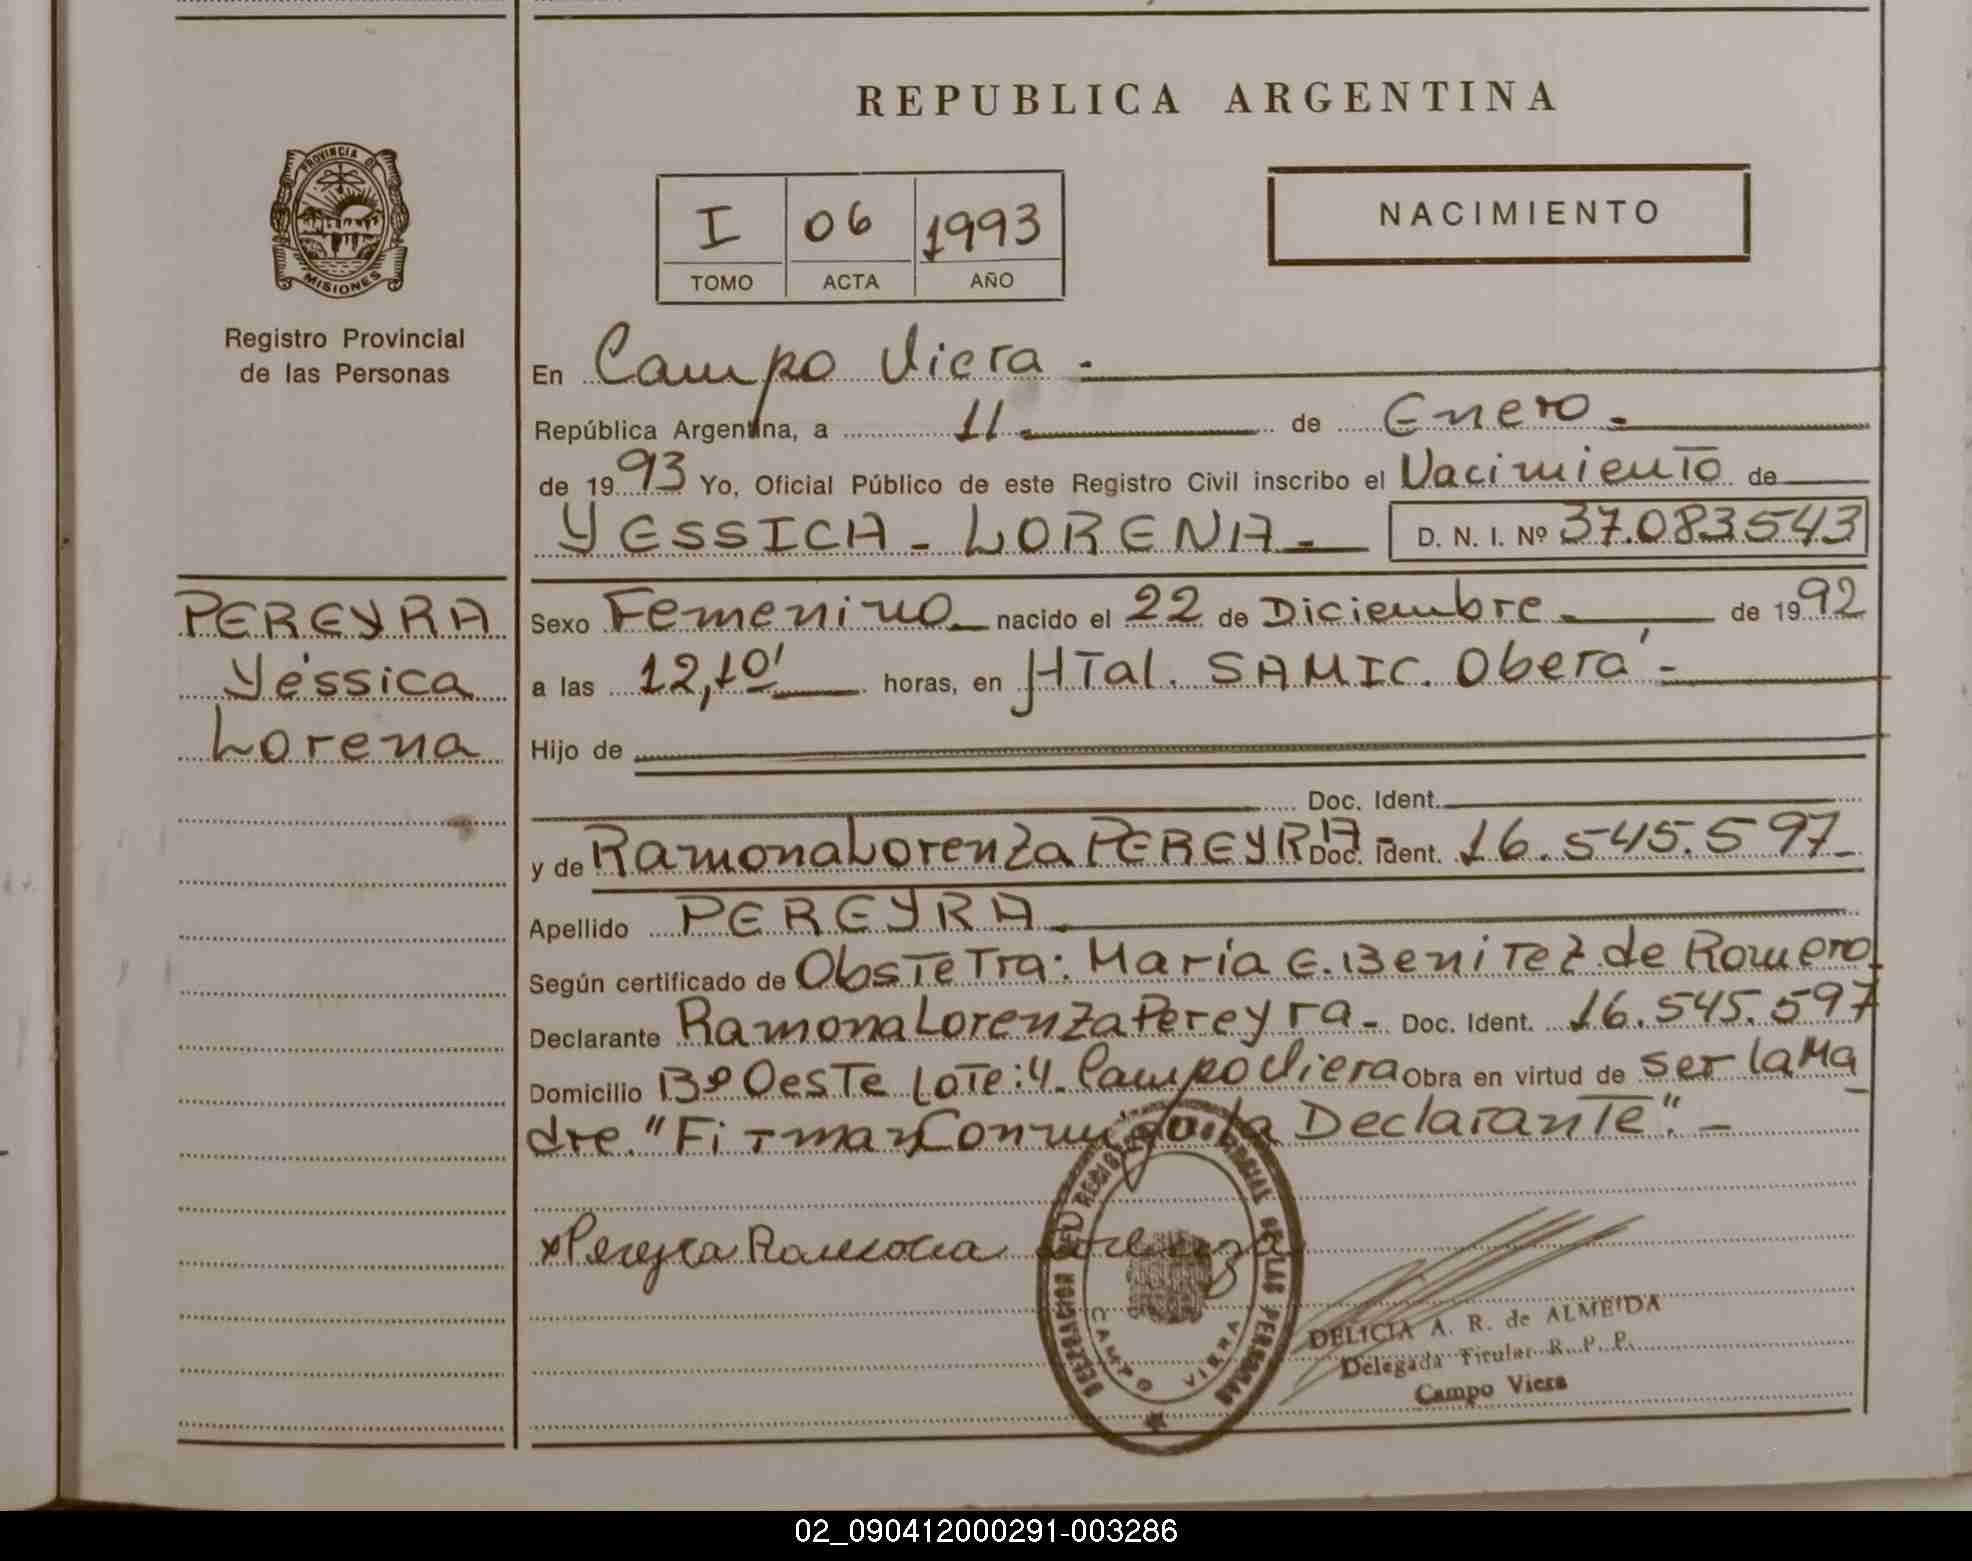 REPUBLICA ARGENTINA
PROVINCIA DE
MISIONES
Registro Provincial
de las Personas
I 06 1993
TOMO ACTA AÑO
NACIMIENTO
En Campo Viera.-
República Argentina, a 11.- de Enero.-
de 1993 Yo, Oficial Público de este Registro Civil inscribo el Nacimiento de
YESSICA - LORENA.- D. N. I. Nº 37.083.543
PEREYRA
Yéssica
Lorena
Sexo Femenino nacido el 22 de Diciembre de 1992
a las 12,10' horas, en HTal. SAMIC. Oberá.-
Hijo de
Doc. Ident.
y de Ramona Lorenza PEREYRA- Doc. Ident. 16.545.597-
Apellido PEREYRA
Según certificado de Obstetra: María E. Benitez de Romero
Declarante Ramona Lorenza Pereyra.- Doc. Ident. 16.545.597
Domicilio Bº Oeste Lote: 4. Campo Viera Obra en virtud de ser la Ma
dre. "Firman Conmigo la Declarante".-
xPereyra Ramona Lorenza
DELEGACION DEL REGISTRO PROVINCIAL DE LAS PERSONAS
CAMPO VIERA
DELICIA A. R. de ALMEIDA
Delegada Titular R. P. P.
Campo Viera
02_090412000291-003286